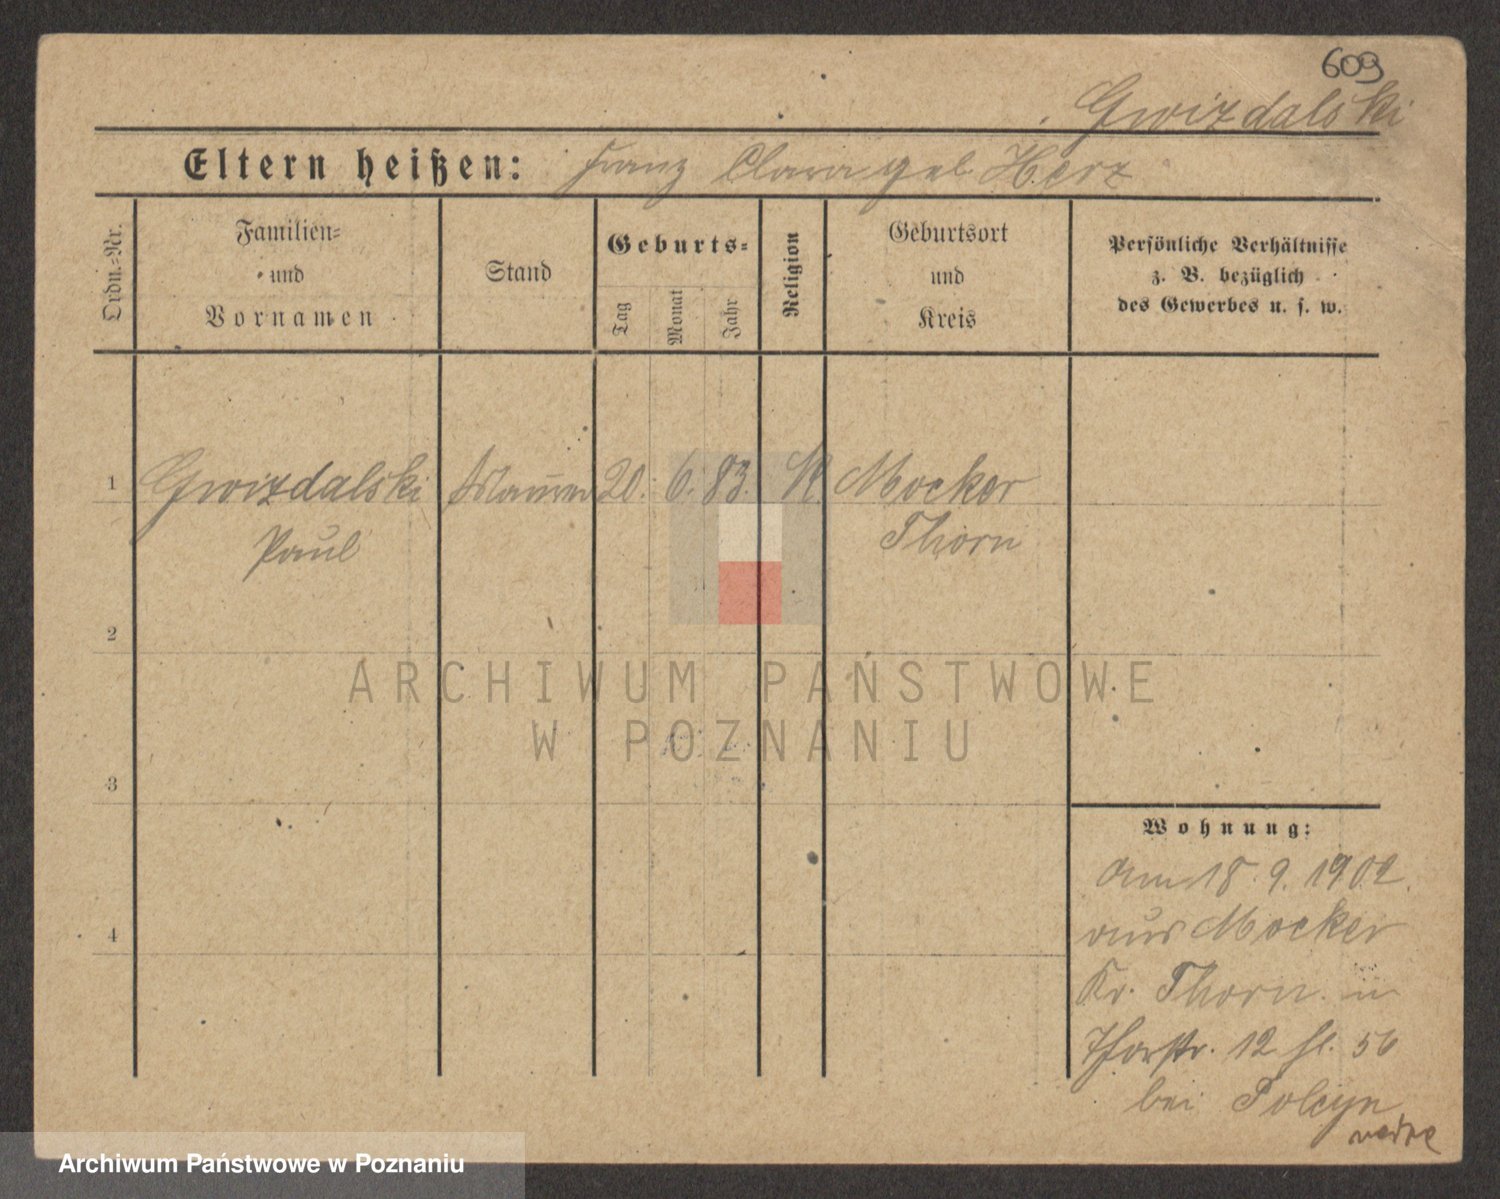 609
Gwizdalski
Eltern heißen: Franz Clara geb Herz
Ordn.-Nr.
Familien-
und
Vornamen
Stand
Geburts-
Tag
Monat
Jahr
Religion
Geburtsort
und
Kreis
Persönliche Verhältnisse
z. B. bezüglich
des Gewerbes u. s. w.
1 Gwizdalski Maurer 20. 6. 83. K Mocker
Paul Thorn
2
3
4
Wohnung:
Am 18. 9. 1902
aus Mocker
Kr. Thorn in
12 56
bei
ARCHIWUM PAŃSTWOWE
W POZNANIU
Archiwum Państwowe w Poznaniu